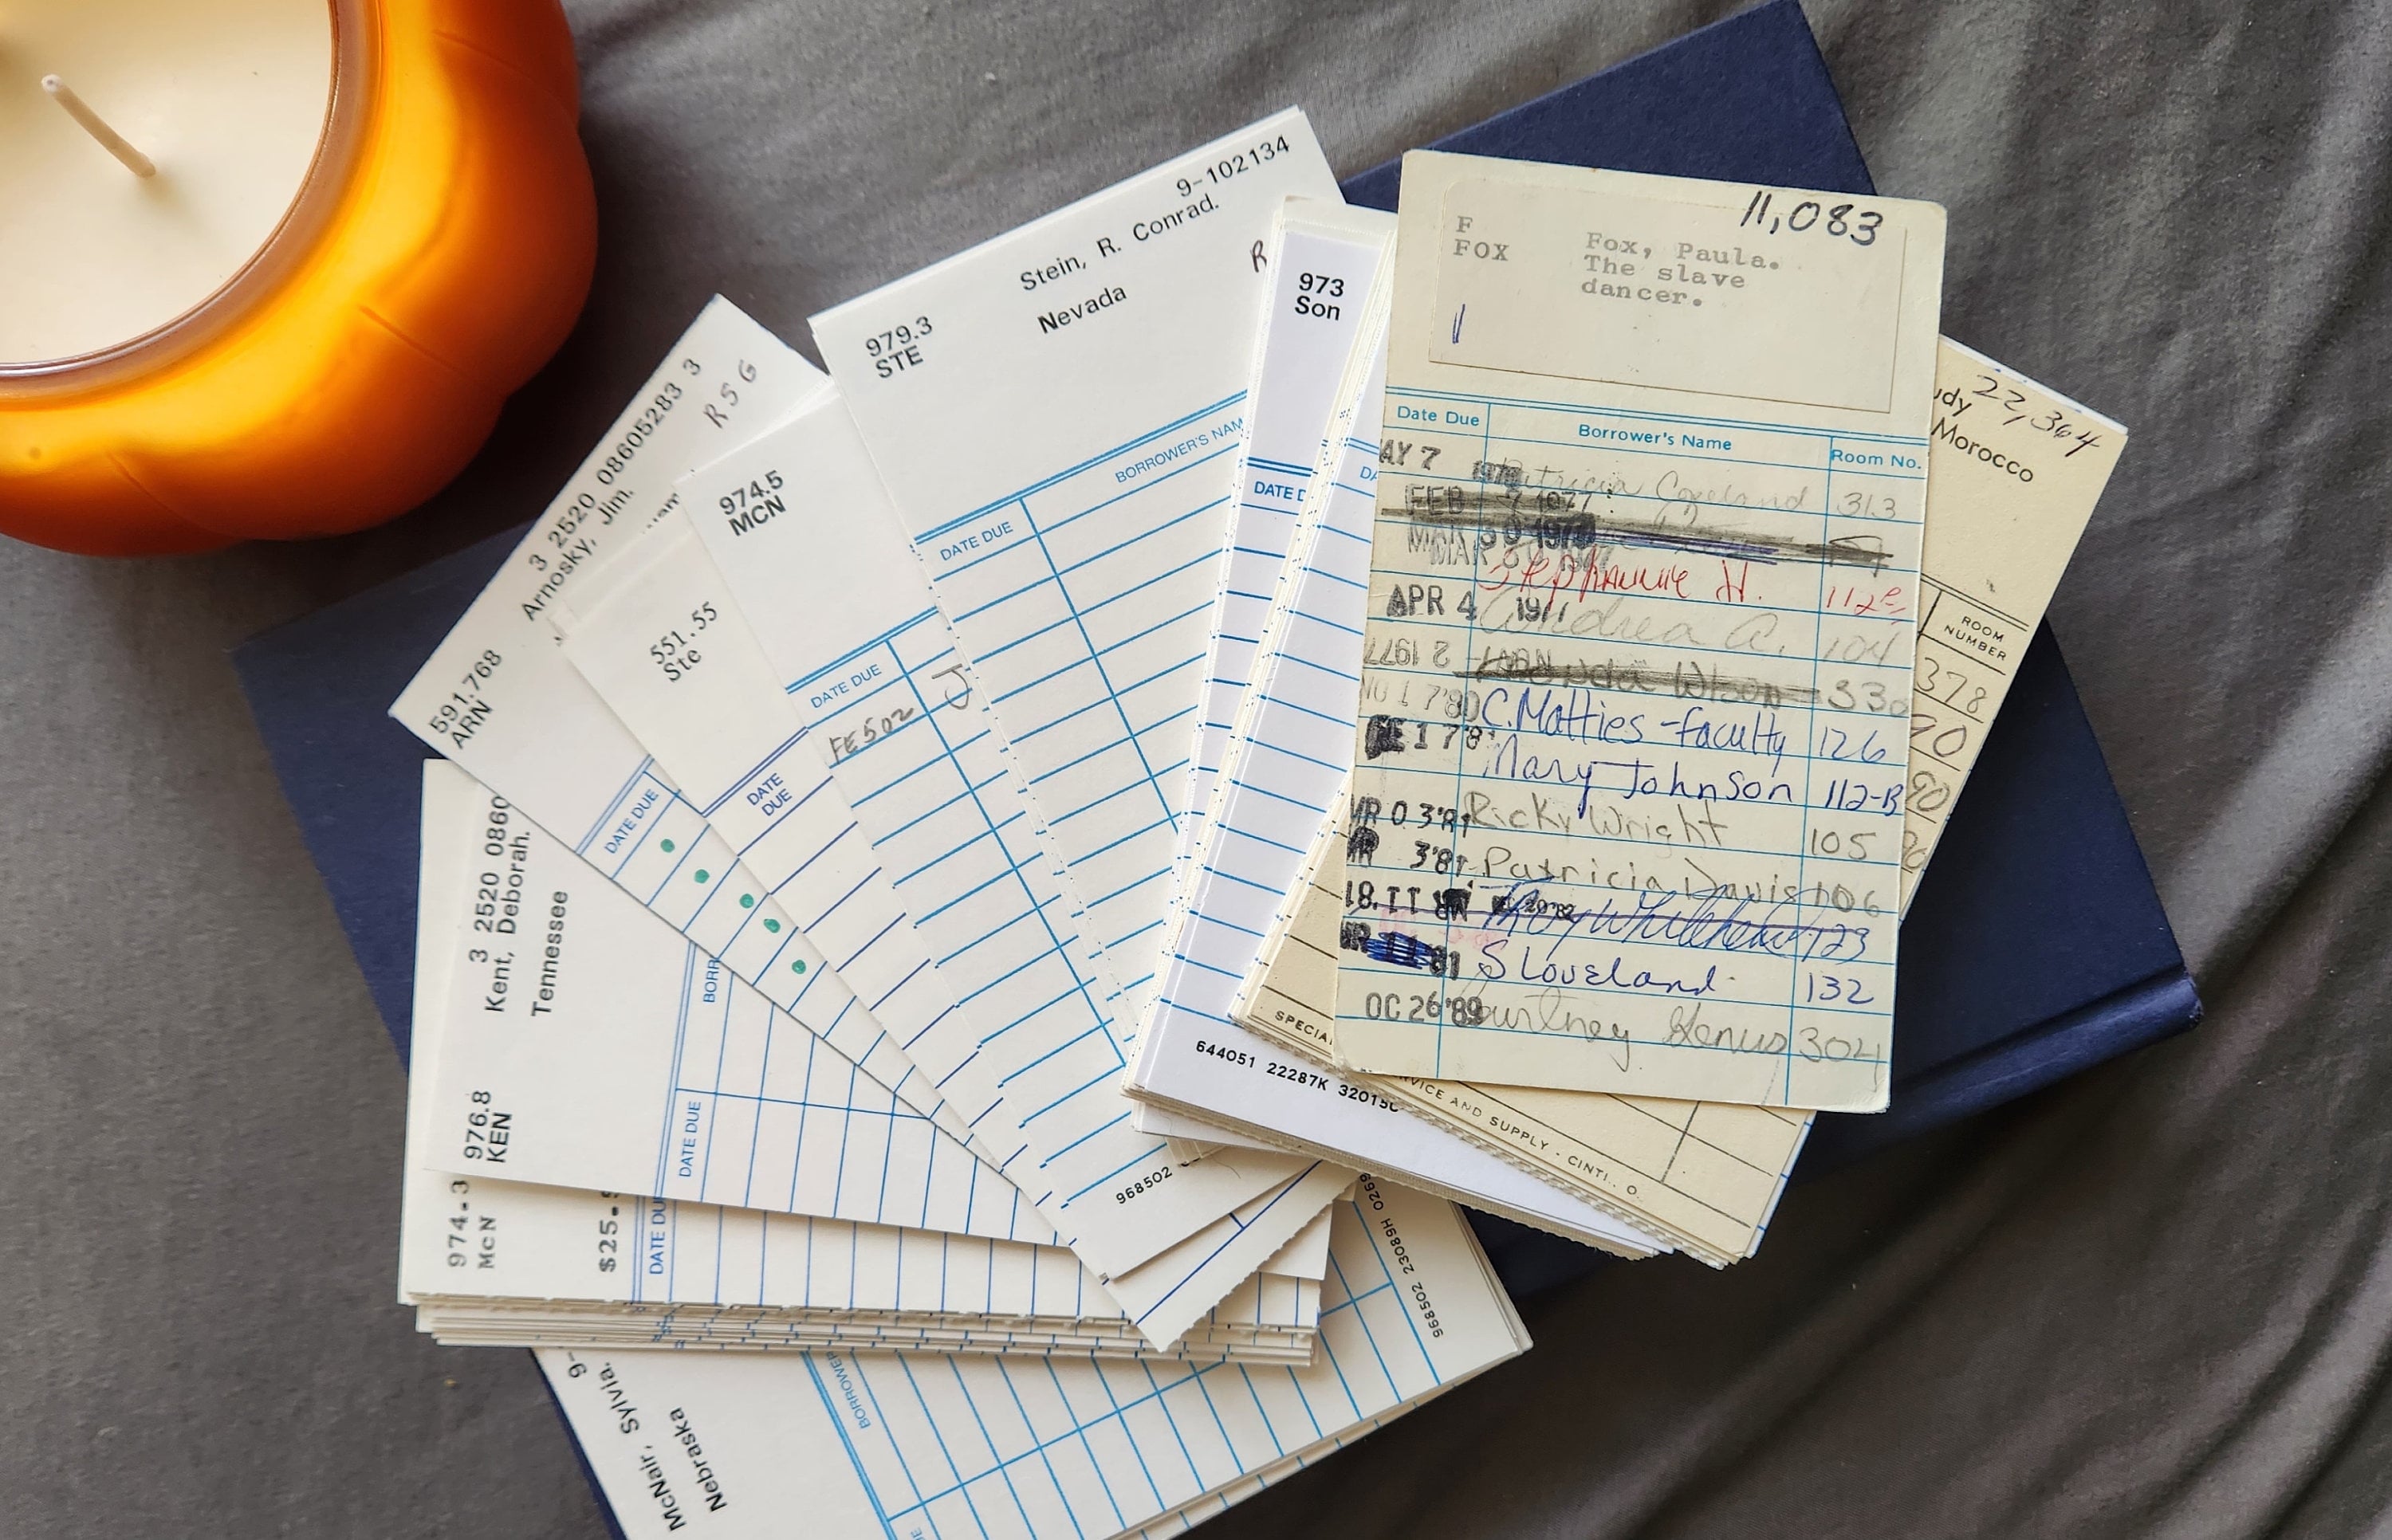 11,083
F
FOX
Fox, Paula.
The slave
dancer.
Date Due
Borrower's Name
Room No.
AY 7
Patricia Copeland
313
FEB 7 1977
MAR 30
Stephannie H.
112
APR 4
Andrea A.
104
2 1977
Wilson
330
NO 1 7'80
C. Matties - faculty
126
FE 1 7'8
Mary Johnson
112-B
MR 0 3'81
Ricky Wright
105
3'81
Patricia Davis
106
123
S Loveland
132
OC 26'89
Courtney
304
22,364
udy
Morocco
ROOM
NUMBER
378
90
90
90
SPECIAL
RVICE AND SUPPLY - CINTI., O.
973
Son
R
DATE D
DA
644051 22287K 32015C
9-102134
Stein, R. Conrad.
Nevada
979.3
STE
BORROWER'S NAM
DATE DUE
968502
974.5
MCN
DATE DUE
FE502
J
551.55
Ste
DATE
DUE
3 2520 08605283 3
RSG
Arnosky, Jim.
591.768
ARN
DATE DUE
BORR
3 2520 0860
Kent, Deborah.
Tennessee
976.8
KEN
DATE DUE
974.3
McN
$25.
DATE DU
9-
McNair, Sylvia.
Nebraska
BORROWER
968502 23089H 0269